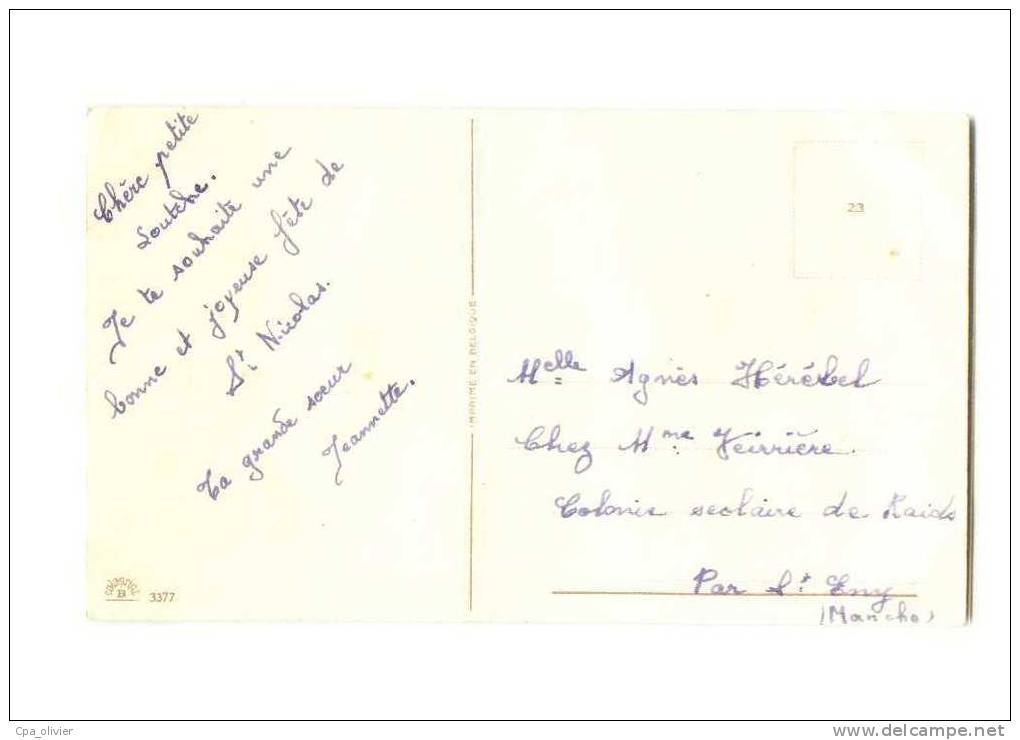 Chère petite
Je te souhaite une
bonne et joyeuse fête de
St Nicolas.
Ta grande soeur
Jeannette.
3377
IMPRIME EN BELGIQUE
23
Melle Agnès
Chez Mme
Colonie scolaire de Raids
Par St Eny
(Manche)
Cpa_olivier
www.delcampe.net